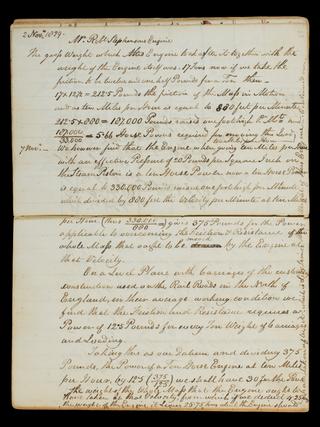 2 Novr 1829. Mr. Robt Stephensons Engine
The gross Weight which this Engine took after it together with the
weight of the Engine itself was 17 Tons now if we take the
friction to be twelve and one half Pounds per a Ton then
17 x 12½ = 212.5 Pounds the friction of the Mass in Motion
and as ten Miles per Hour is equal to 880 feet per Minute
212.5 x 880 = 187,000 Pounds raised one foot high Pr
187,000
33,000 = 5.66 Horse Power required for moving this load
7 Novr We however find that the Engine when going ten Miles per Hour
with an effective Pressure of 20 Pounds per Square Inch on
the Steam Piston is a ten Horse Power now a ten Horse Power
is equal to 330,000 Pounds raised one foot high per Minute
which divided by 880 for the Velocity per Minute at ten Miles
per Hour (thus 330,000
880) gives 375 Pounds for the Power
applicable to overcoming the Friction & Resistance of the
whole Mass that ought to be moved by the Engine at
that Velocity.
On a Level Plane with Carriages of the customary
construction used on the Rail Roads in the North of
England, in their average working condition we
find that the Friction and Resistance requires a
Power of 12.5 Pounds for every Ton Weight of Carriages
and Loading.
Taking this as our Datum and dividing 375
Pounds, the Power of a Ten Horse Engine at ten Miles
per Hour, by 12.5 (375
12.5) we shall have 30 for the Tons
the weight of the Whole Mass that the Engine ought to
have taken at that Velocity, from which if we deduct 4.25
the weight of the Engine it leaves 25.75 Tons that the Engine should